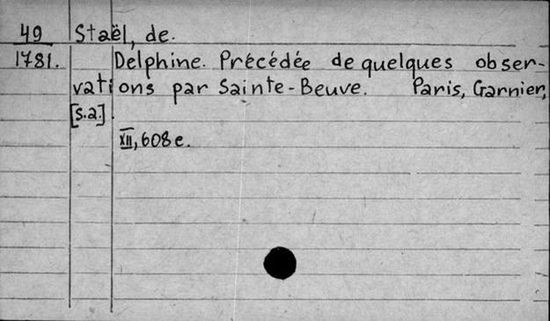 49 Staël, de.
1781. Delphine. Précédée de quelques obser-
vations par Sainte-Beuve. Paris, Garnier,
[s.a.].
XII, 608 e.